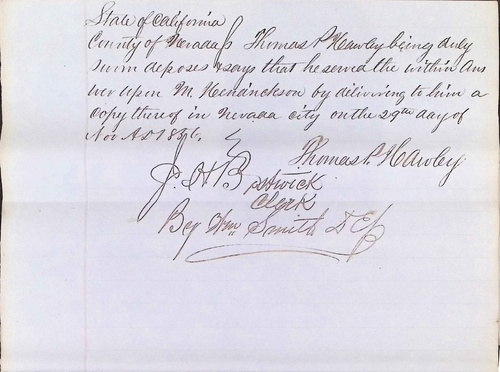 State of California
County of Nevada Thomas P Hawley being duly
sworn deposes & says that he served the within Ans
wer upon M. Hendrickson by delivering to him a
Copy thereof in Nevada city on the 29th day of
Nov AD 1856.
Thomas P Hawley
J. H Bostwick
Clerk
By Wm Smith D C